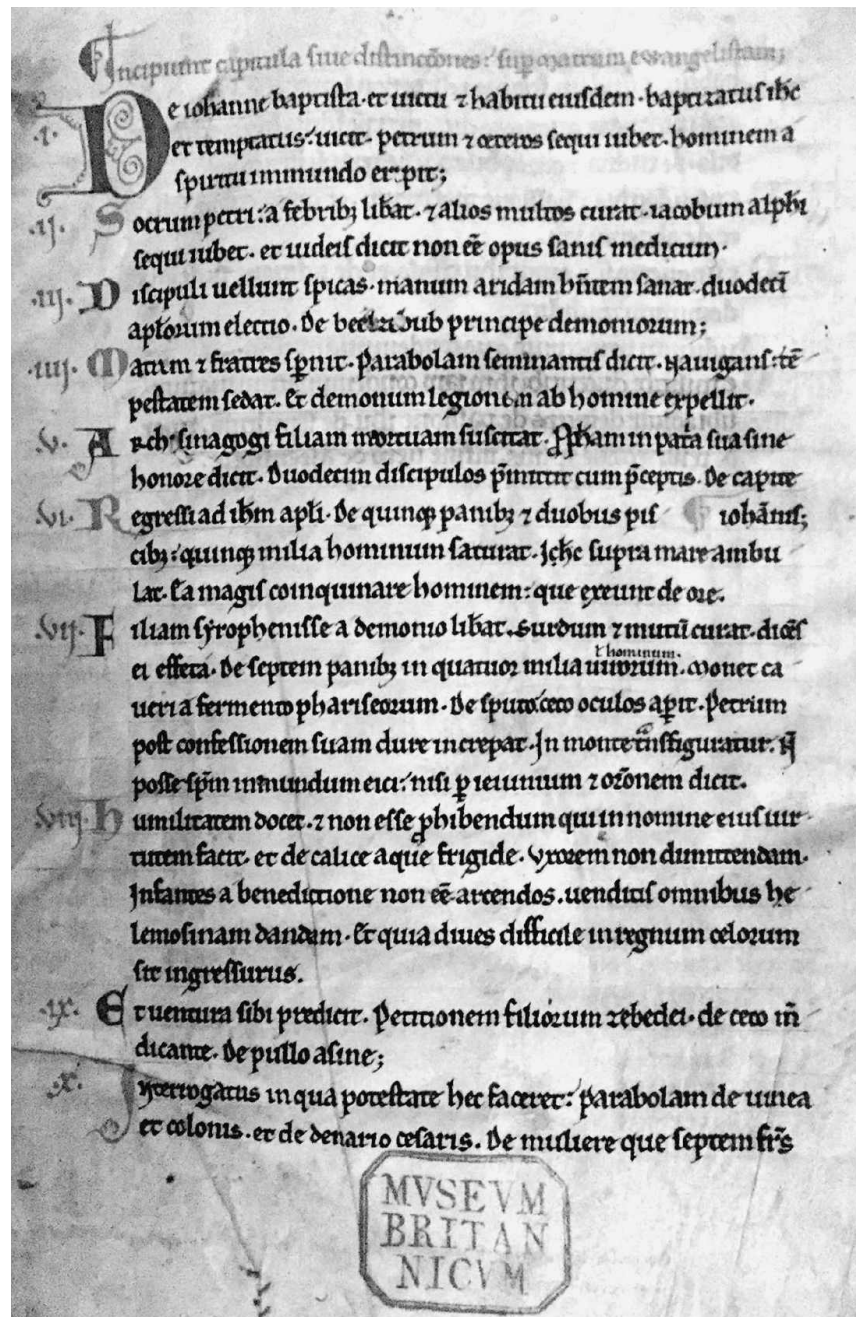 Incipiunt capitula siue distinctiones: sup marcum ewangelistam;
.i. De iohanne baptista. et uictu ⁊ habitu eiusdem. baptizatus ihc
et temptatus: uicit. petrum ⁊ ceteros sequi iubet. hominem a
spiritu immundo eripit;
.ii. Socrum petri: a febribꝫ libat. ⁊ alios multos curat. iacobum alphi
sequi iubet. et iudeis dicit non eē opus sanis medicum.
.iii. Discipuli uellunt spicas. manum aridam hn̄tem sanat. duodeci
aplorum electio. De beelzebub principe demoniorum;
.iiii. Matrem ⁊ fratres spnit. Parabolam seminantis dicit. Nauigans: tē
pestatem sedat. Et demonum legionem ab homine expellit.
.v. Archisinagogi filiam mortuam suscitat. Ꝓpham in patia sua sine
honore dicit. Duodecim discipulos pmittit cum pceptis. De capite
.vi. Regressi ad ihm apli. de quinqꝫ panibꝫ ⁊ duobus pis iohānis;
cibꝫ: quinqꝫ milia hominum saturat. Ihc supra mare ambu
lat. Ea magis coinquinare hominem: que exeunt de ore.
.vii. Filiam syrophenisse a demonio libat. Surdum ⁊ mutū curat. dicēs
ei effeta. De septem panibꝫ in quatuor milia uirorum. Monet ca
ł hominum.
ueri a fermento phariseorum. De sputo: ceco oculos apit. Petrum
post confessionem suam dure increpat. In monte tnsfiguratur. N̄
posse spm inmundum eici: nisi ꝑ ieiunium ⁊ orōnem dicit.
.viii. Humilitatem docet. ⁊ non esse ꝓhibendum qui in nomine eius uir
tutem facit. et de calice aque frigide. Vxorem non dimittendam.
Infantes a benedictione non eē arcendos. uenditis omnibus he
lemosinam dandam. Et quia diues difficile in regnum celorum
sit ingressurus.
.ix. Et uentura sibi predicit. Petitionem filiorum zebedei. de ceco m̄
dicante. De pullo asine;
.x. Interrogatus in qua potestate hec faceret: parabolam de uinea
et colonis. et de denario cesaris. De muliere que septem frs
MVSEVM
BRITAN
NICVM